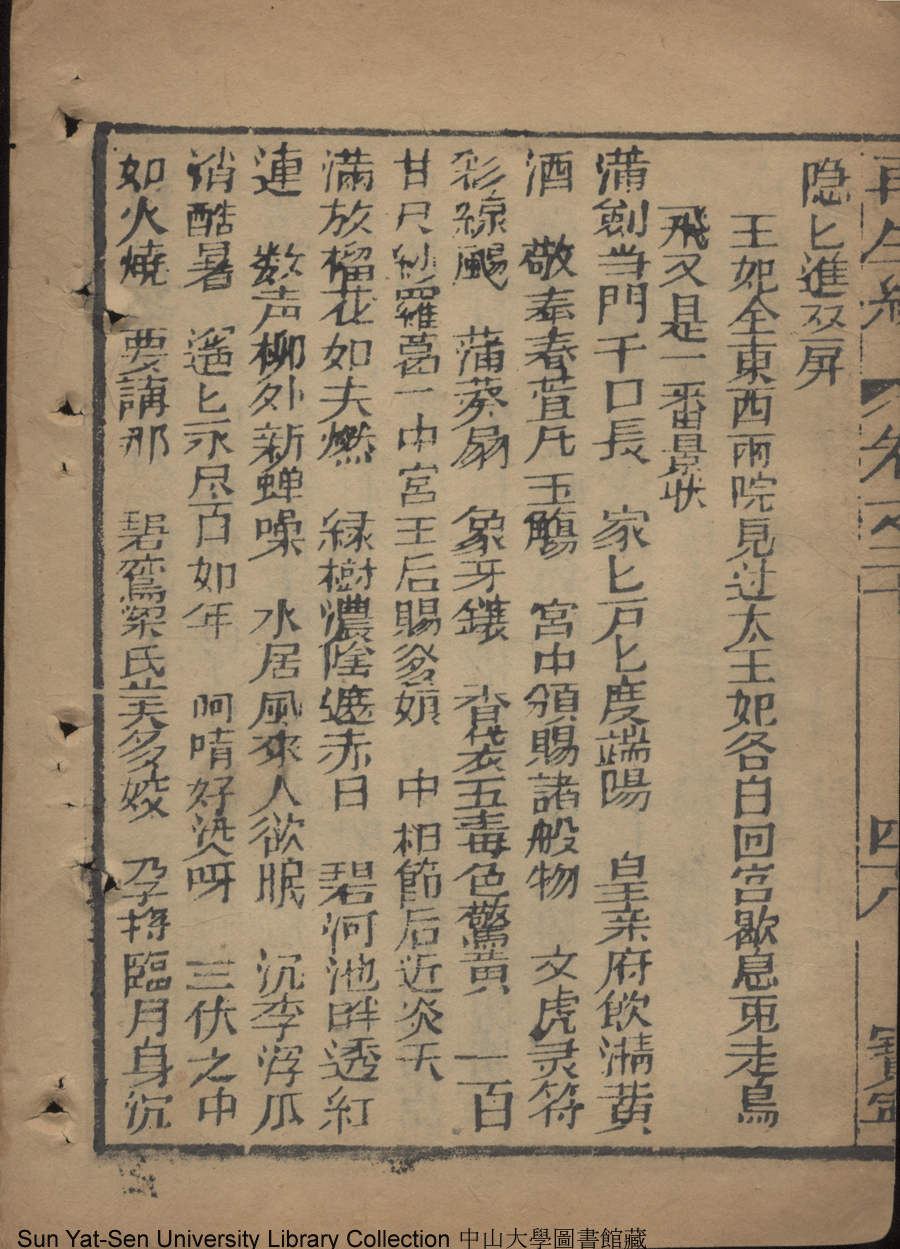 再生緣 卷之二十 四十八 寶寧
隐匕進双屏
王妃仝東西兩院見过太王妃各自回宫歇息兎走烏
飛又是一番景状
蒲劍当門千口長 家匕戸匕度端陽 皇亲府飲 黄
酒 敬奉春萱凡玉觴 宮中頒賜諸般物 文虎灵符
彩線颺 蒲葵扇 象牙鑲 香袋五毒色驚黄 一百
甘尺紗羅葛 一中宮王后賜爹娘 中相節后近炎天
滿放榴花如夫燃 緑樹濃陰遮赤日 碧河池畔透紅
連 数声柳外新蝉噪 水居風來人欲眠 沉李浮瓜
消酷暑 遥匕永尽百如年 呵唷好烫呀 三伏之中
如火燒 要講那 碧鸞梁氏美多姣 孕将臨月身沉
Sun Yat-Sen University Library Collection 中山大學圖書館藏